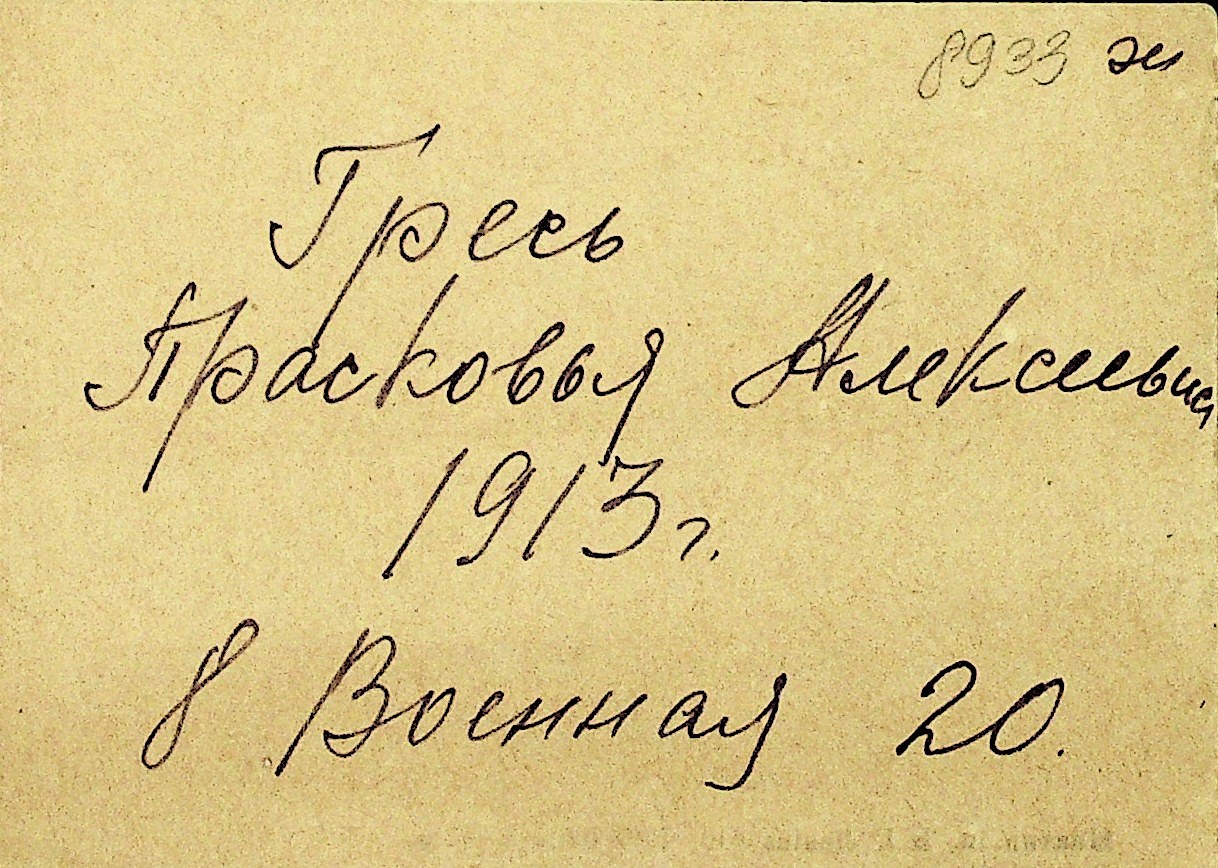 8933 ж
Гресь
Прасковья Алексеевна
1913 г.
8 Военная 20.